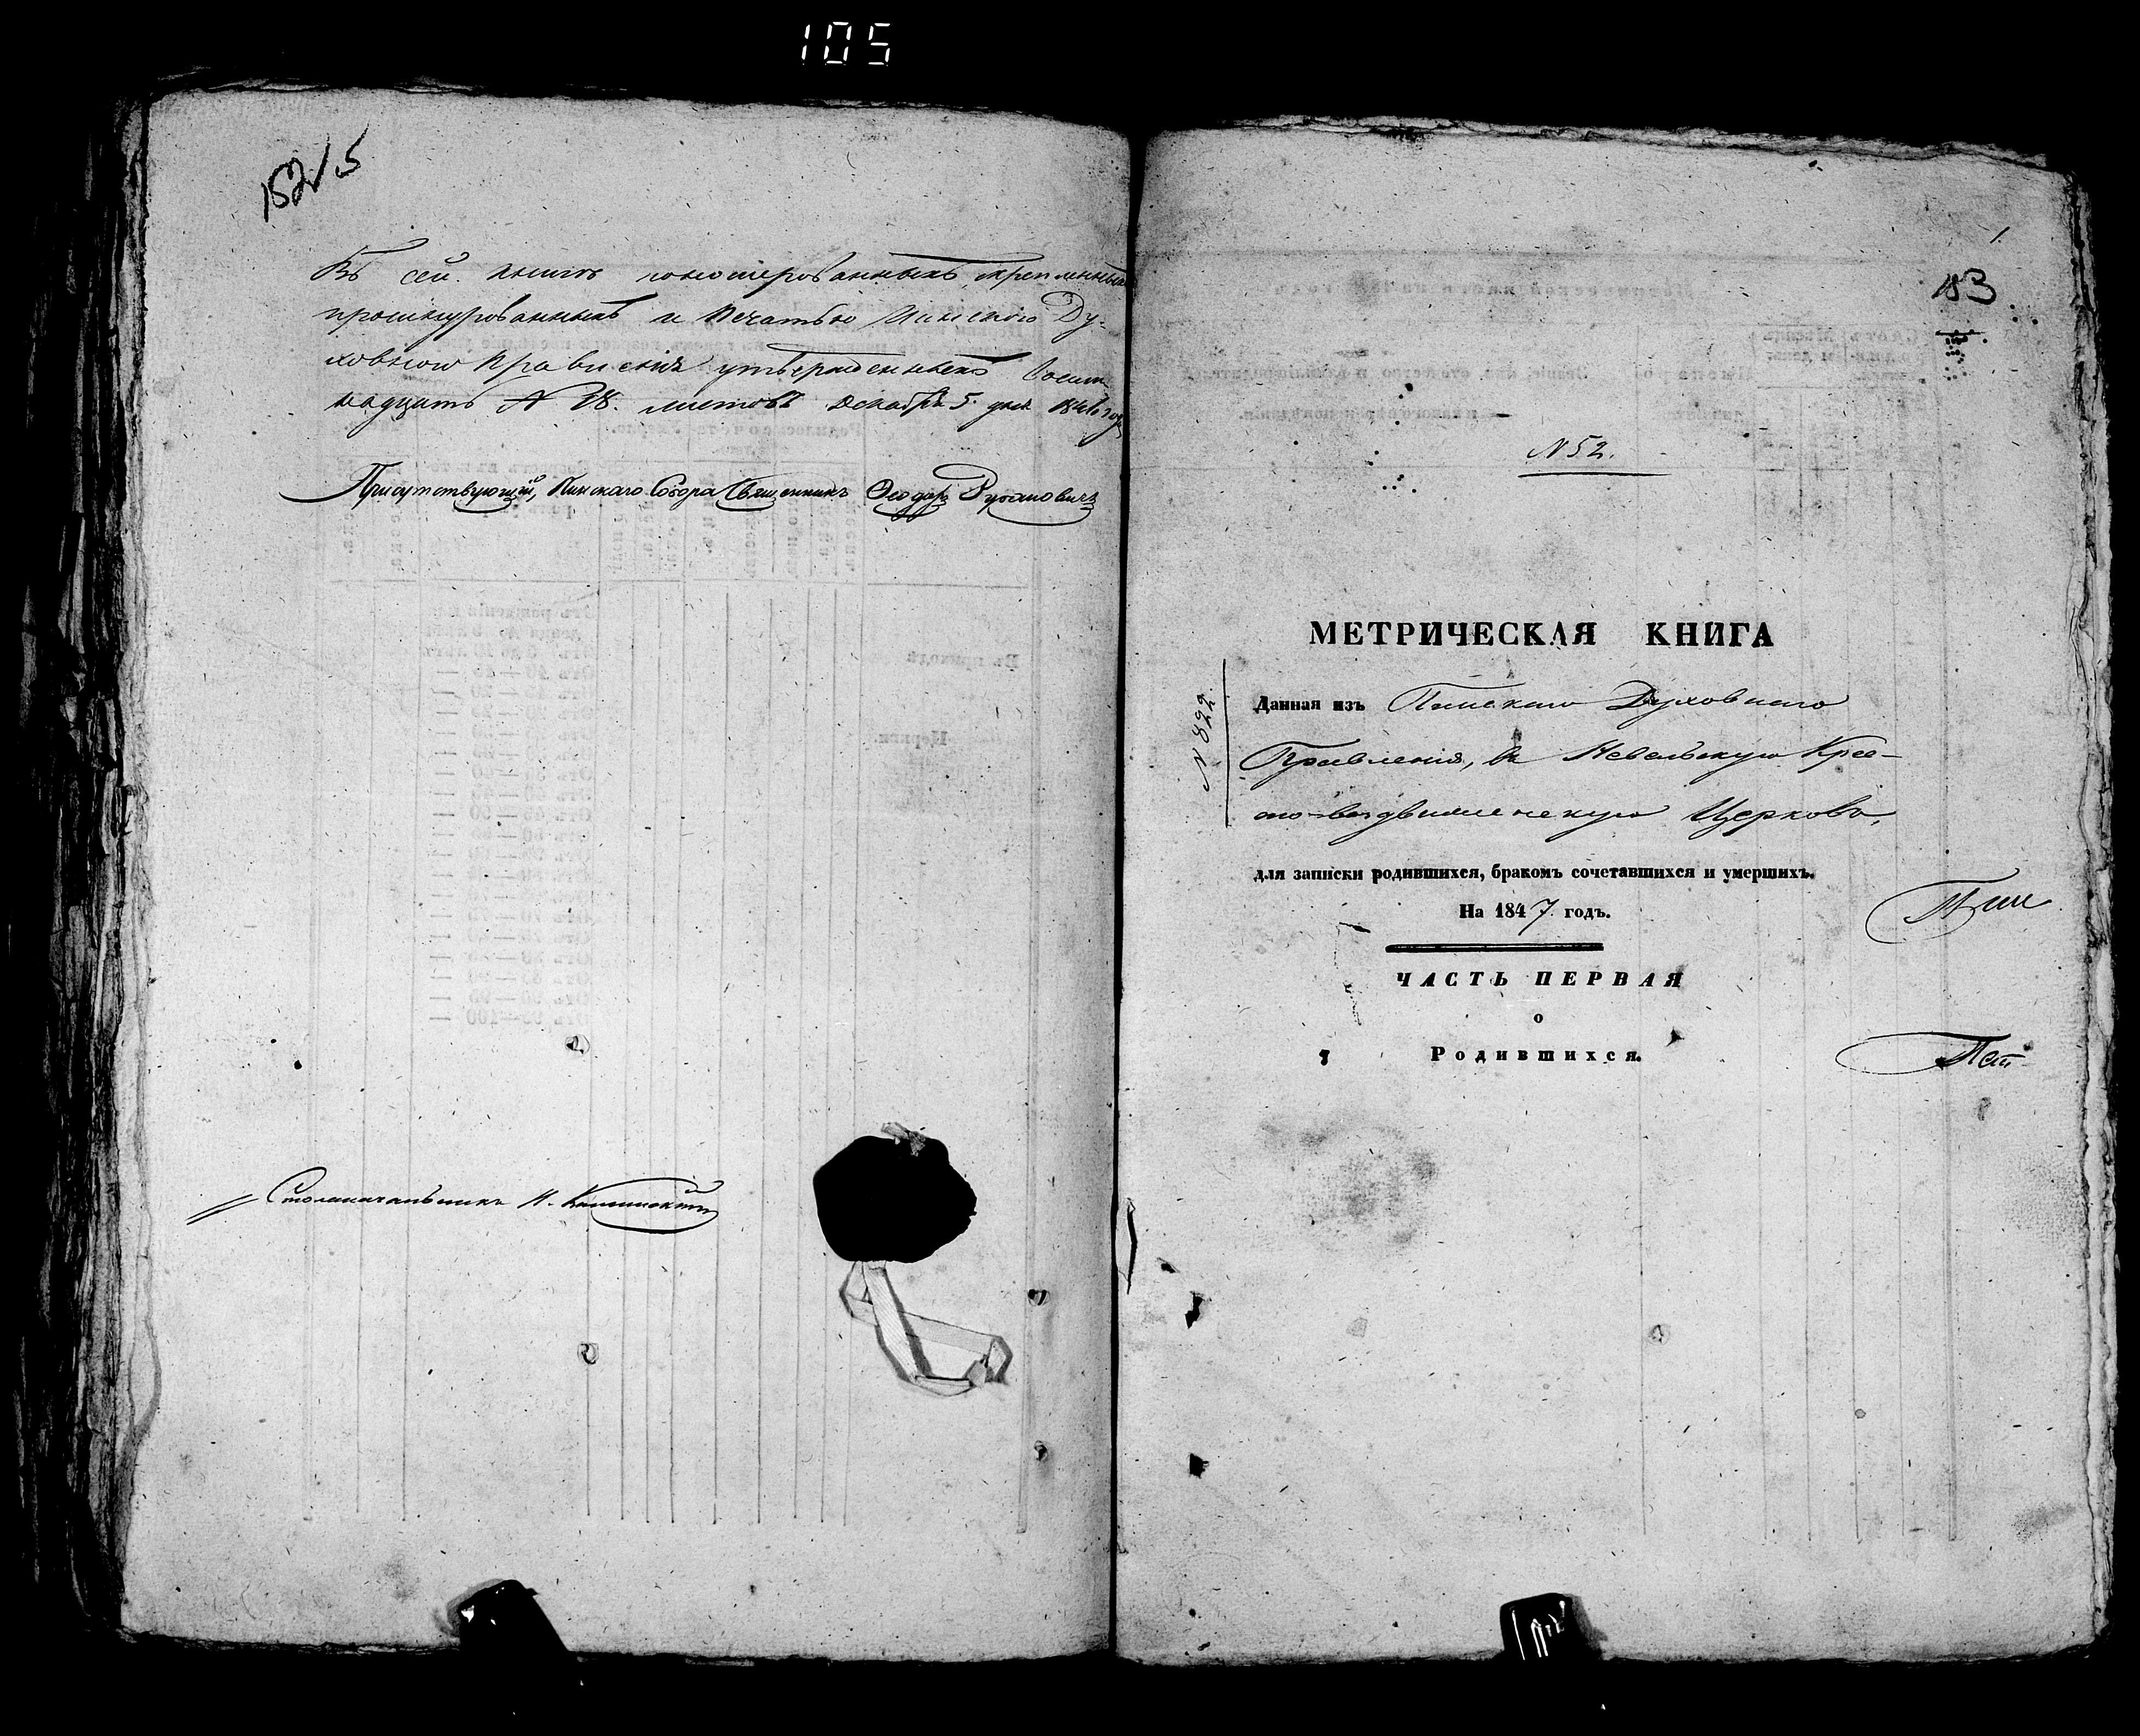 105
152об
Въ сей книгѣ нономерованныхъ, скрепленныхъ
прошнурованныхъ и печатью Пинского Ду-
ховного Правленія утвержденныхъ восем
надцать № 18. листовъ Декабря 5. дня 1846 года
Присутствующій, Пинскаго Собора Священникъ Ѳеодоръ
Столоначальникъ Н.
1.
183
N 52.
МЕТРИЧЕСКАЯ КНИГА
N 822.
Данная изъ Пинскаго Духовнаго
Правленія, въ Невельскую Крес-
то-воздвиженскую Церковь,
для записки родившихся, бракомъ сочетавшихся и умершихъ.
На 1847 годъ.
Пин
ЧАСТЬ ПЕРВАЯ
о
Родившихся.